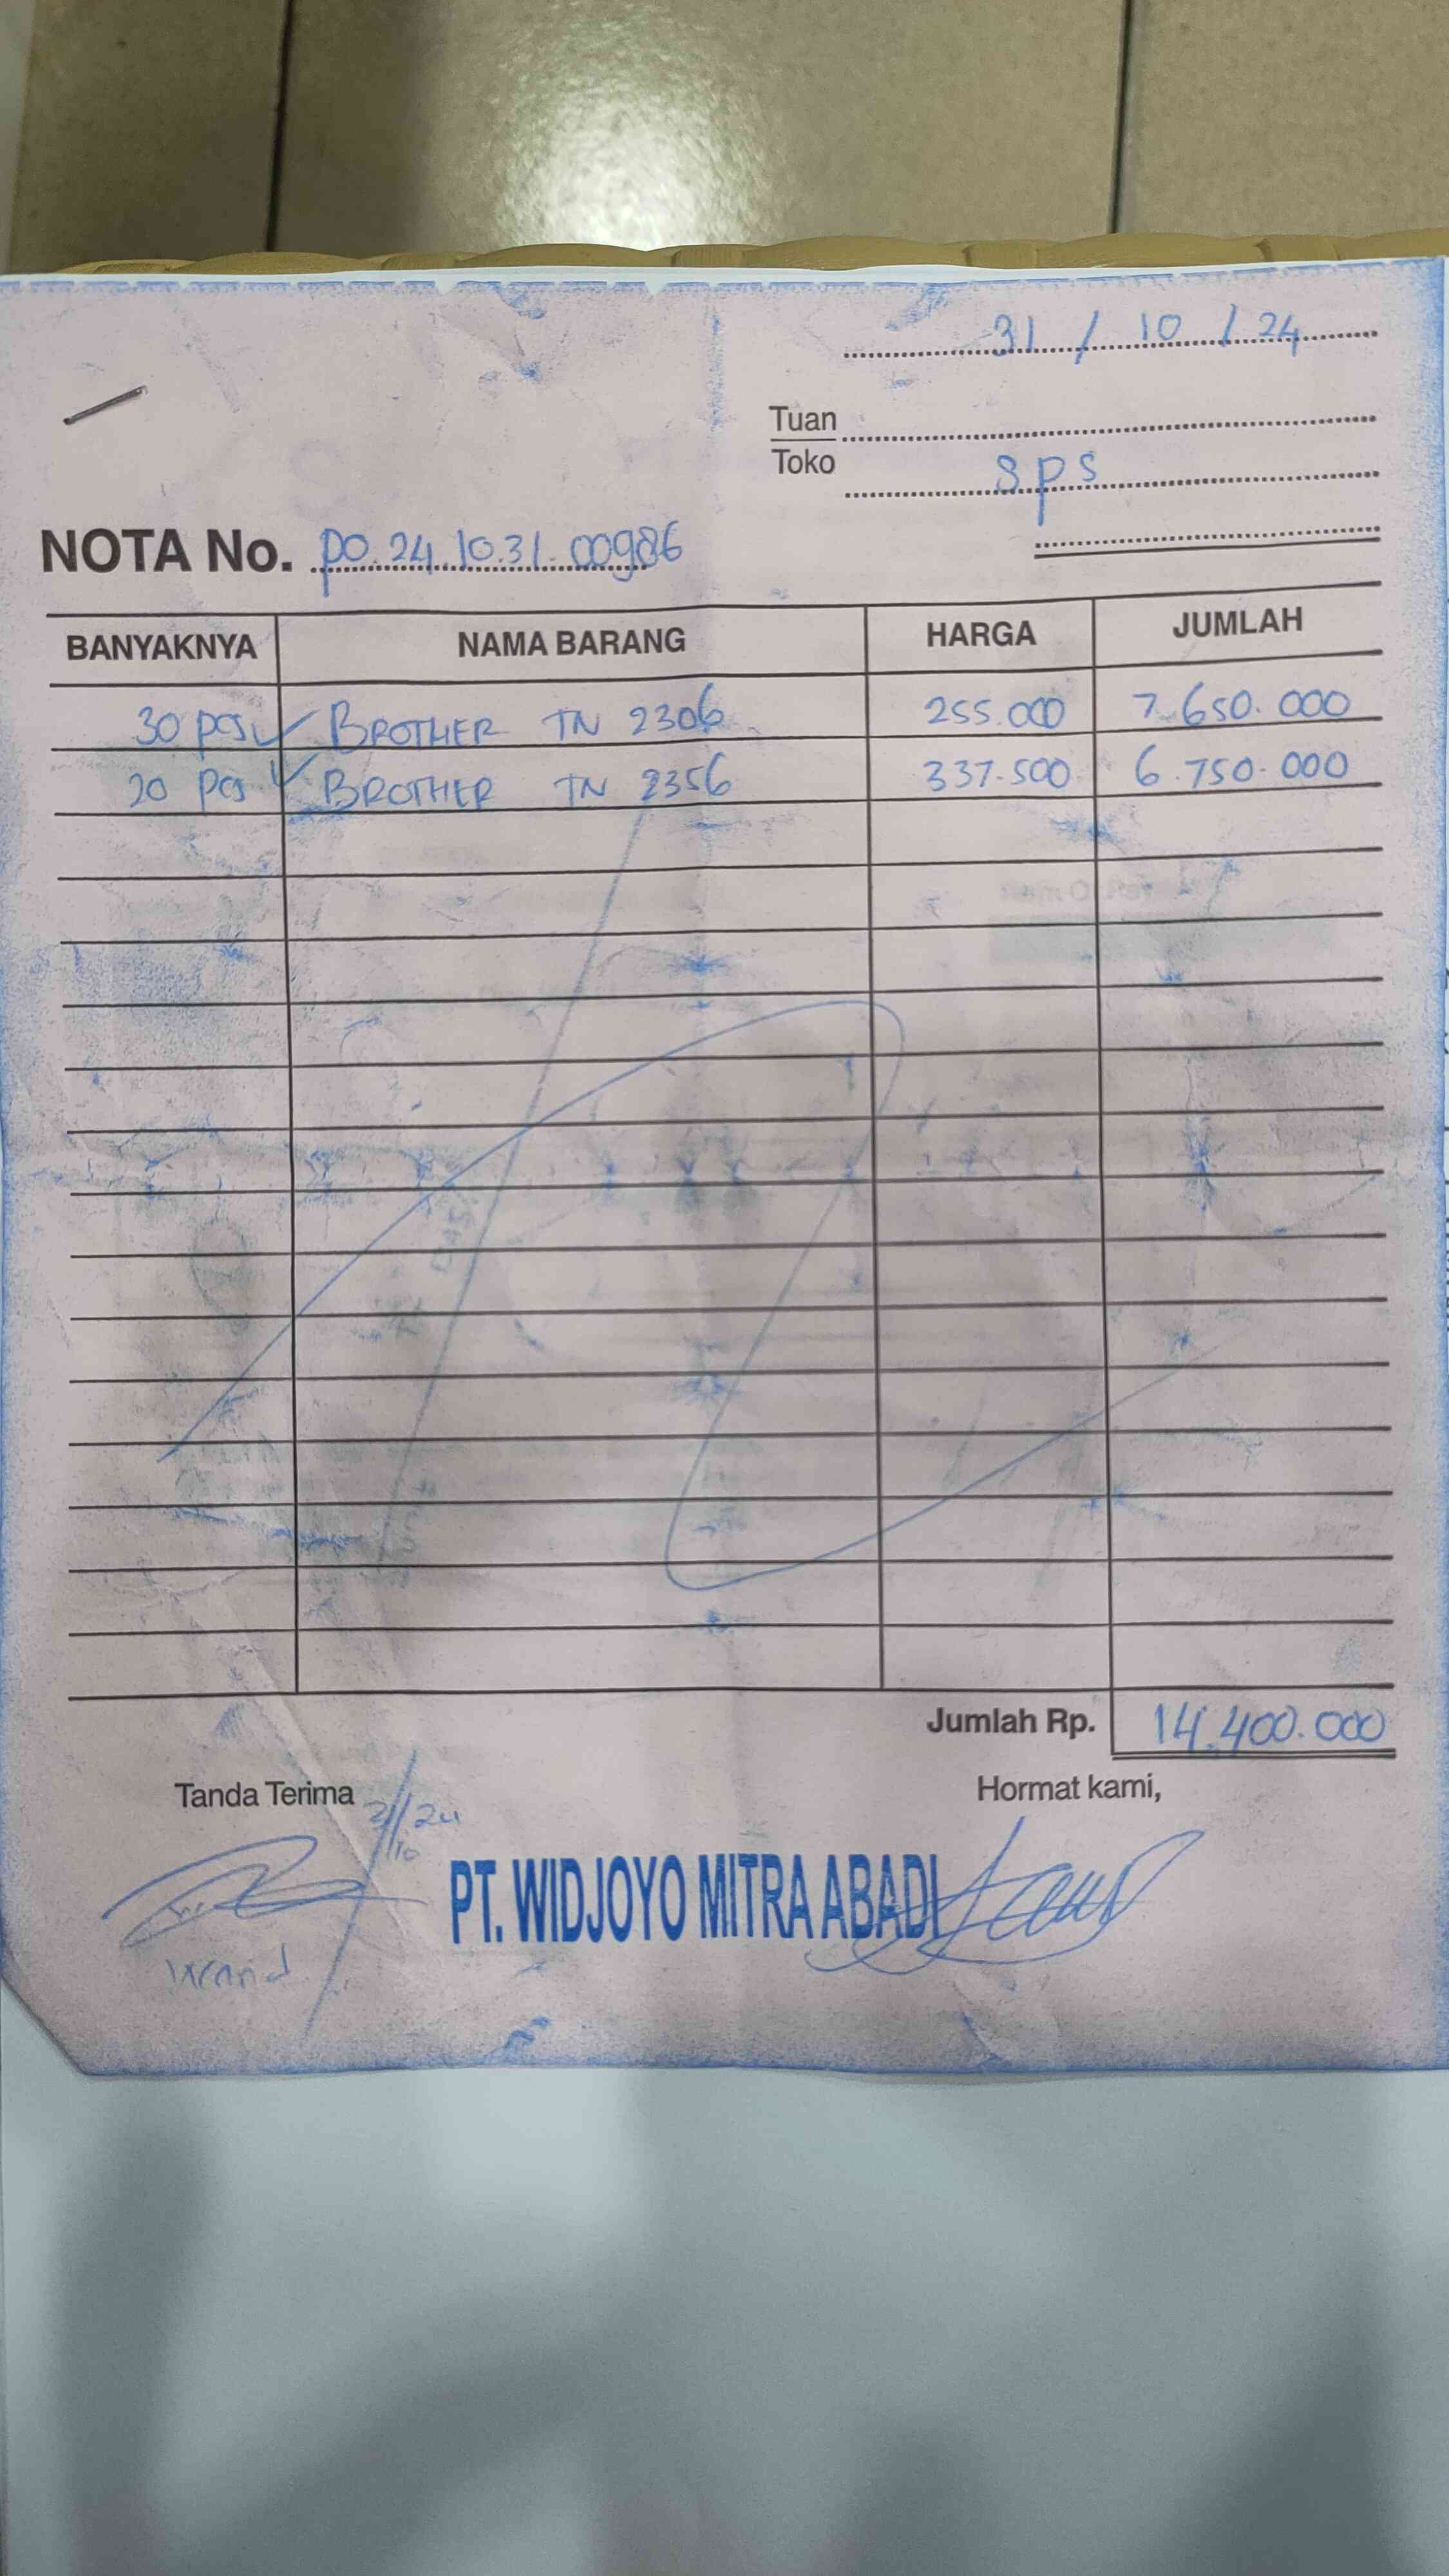 31 / 10 / 24
Tuan
Toko sps
NOTA No. PO.24.10.31.00986
BANYAKNYA NAMA BARANG HARGA JUMLAH
30 pcs BROTHER TN 2306 255.000 7.650.000
20 pcs BROTHER TN 2356 337.500 6.750.000
Jumlah Rp. 14.400.000
Tanda Terima Hormat kami,
31/10 24
PT. WIDJOYO MITRA ABADI